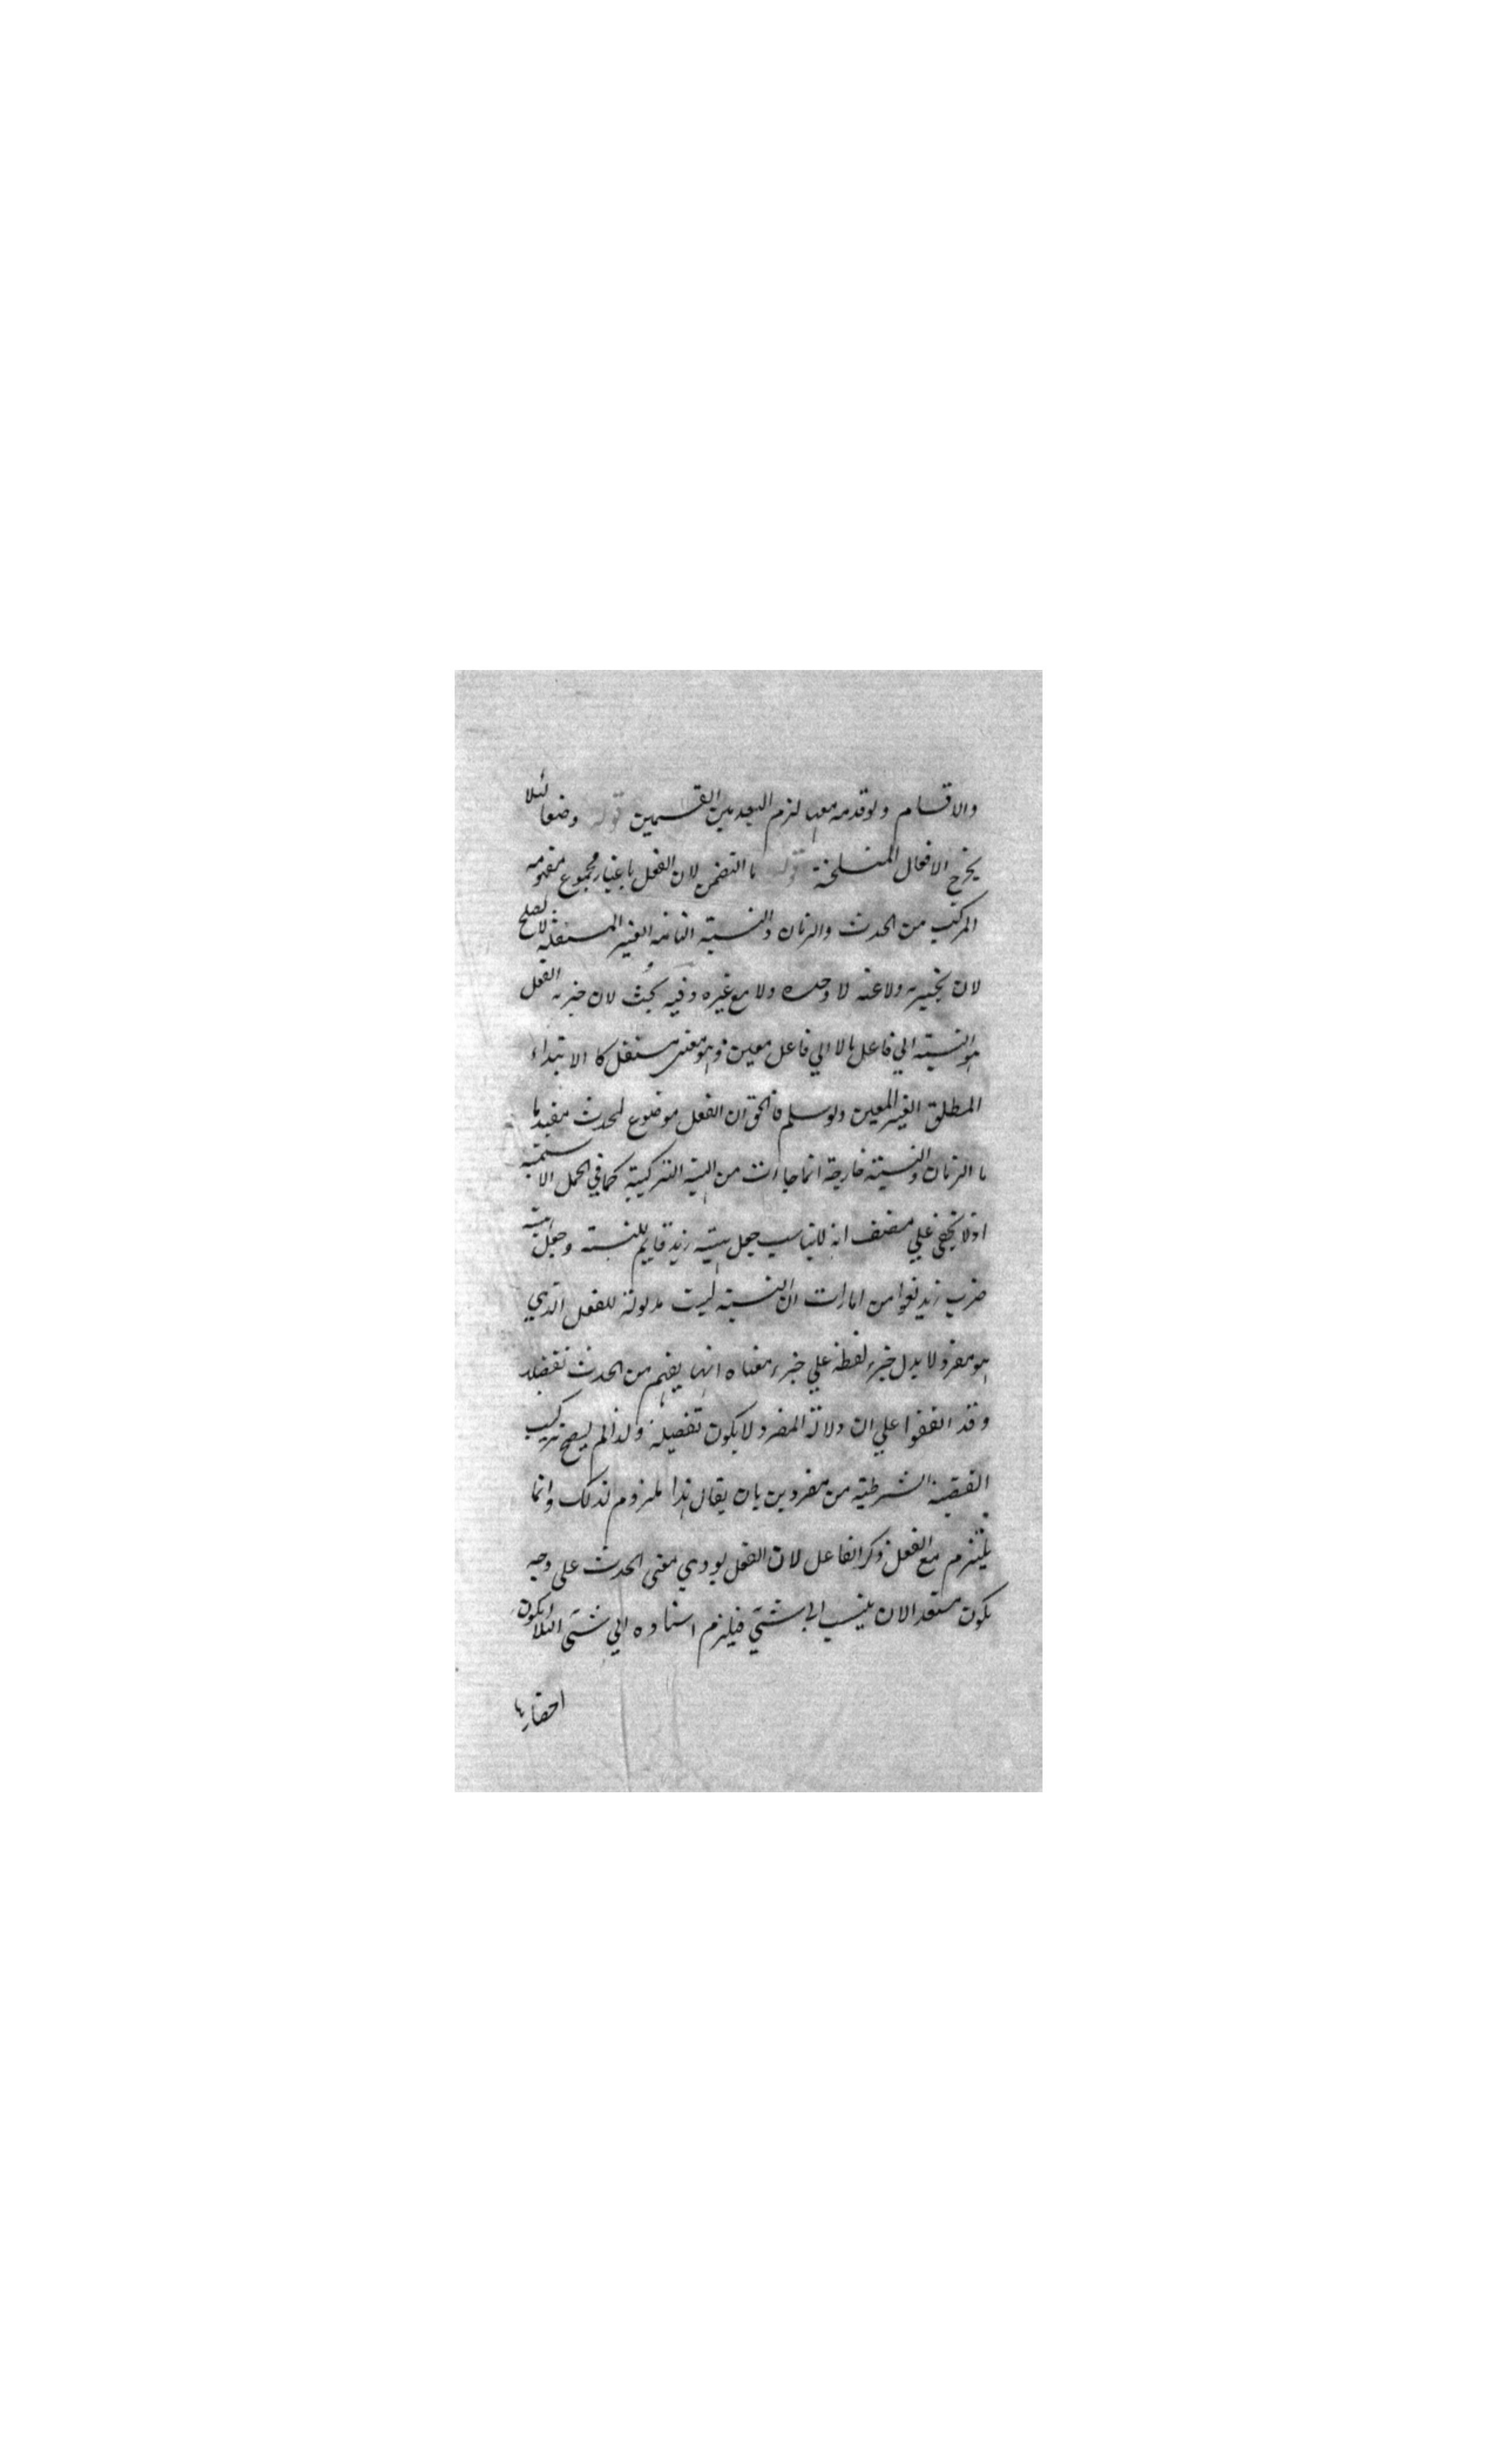 والاقسام ولو قدمه معها لزم البعد بين القسمين قوله وضعا لئلا
يخرج الافعال المنسلخة قوله بالتضمن لان الفعل باعتبار مجموع مفهومه
المركب من الحدث والزمان والنسبة التامة الغير المستقلة لا يصلح
لان يخبر به ولا عنه لا وحده ولا مع غيره وفيه بحث لان جزء الفعل
هو النسبة الي فاعل ما لا الي فاعل معين وهو معنى مستقل كالابتداء
المطلق الغير المعين ولو سلم فالحق ان الفعل موضوع لحدث مقيد
بالزمان والنسبة خارجة انما جاءت من الهيئة التركيبية كما في الجمل الاسمية
اذ لا يخفي علي مصنف انه لا يناسب جعل هيئة زيد قايم للنسبة وجعل هيئة
ضرب زيد لغوا من امارات ان النسبة ليست مدلولة للفعل الذي
هو مفرد لا يدل جزء لفظه علي جزء معناه انها يفهم من الحدث تفصيلا
وقد اتفقوا علي ان دلالة المفرد لا يكون تفصيلية ولذا لم يصح تركيب
القضية الشرطية من مفردين بان يقال هذا ملزوم لذلك وانما
يلتزم مع الفعل ذكر الفاعل لان الفعل يودي معنى الحدث على وجه
يكون مستعدا لان ينسب الى شئ فيلزم اسناده الي شئ لئلا يكون
احضارها